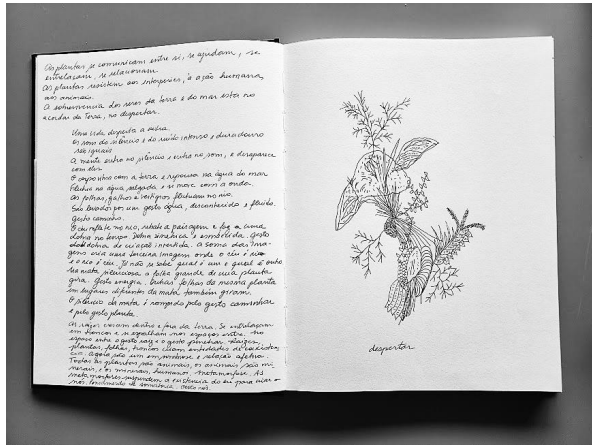 As plantas se comunicam entre si, se ajudam, se
entrelaçam, se relacionam.
As plantas resistem aos intempéries, à ação humana,
aos animais.
A sobrevivência dos seres da terra e do mar está no
acordar da terra, no despertar.
Uma vida desperta a outra.
Os sons do silêncio e do ruído intenso e duradouro
são iguais
A mente entra no silêncio e entra no som, e desaparece
com eles
O corpo com a terra e repousa na água do mar
Flutua na água salgada e se move com a onda.
As folhas, galhos e vestígios flutuam no rio.
São levados por um gesto água, desconhecido e fluido.
Gesto caminho.
O céu reflete no rio, rebate a paisagem e faz a uma
dobra no tempo. Dobra simétrica e esmaecida, gesto
dobra de criação invertida. A soma das ima-
gens cria uma terceira imagem onde o céu é rio
e o rio é céu. Já não se sabe qual é um e qual é outro
Na mata silenciosa a folha grande de uma planta
gira. Gesto energia. Outras folhas da mesma planta
em lugares diferentes da mata também giram.
O silêncio da mata é rompido pelo gesto caminhar
e pelo gesto planta.
As raízes vivem dentro e fora da terra. Se entrelaçam
em troncos e se espalham nos espaços entre. No
espaço entre o gesto raiz e o gesto preencher. Raízes,
plantas, folhas, troncos criam entidades de coexistên-
cia. Agora são um em simbiose e relação afetiva.
Todas as plantas são animais, os animais são mi-
nerais, e os minerais, humanos. Metamorfose. As
metamorfoses suspendem a existência do eu para criar o
nós.
despertar